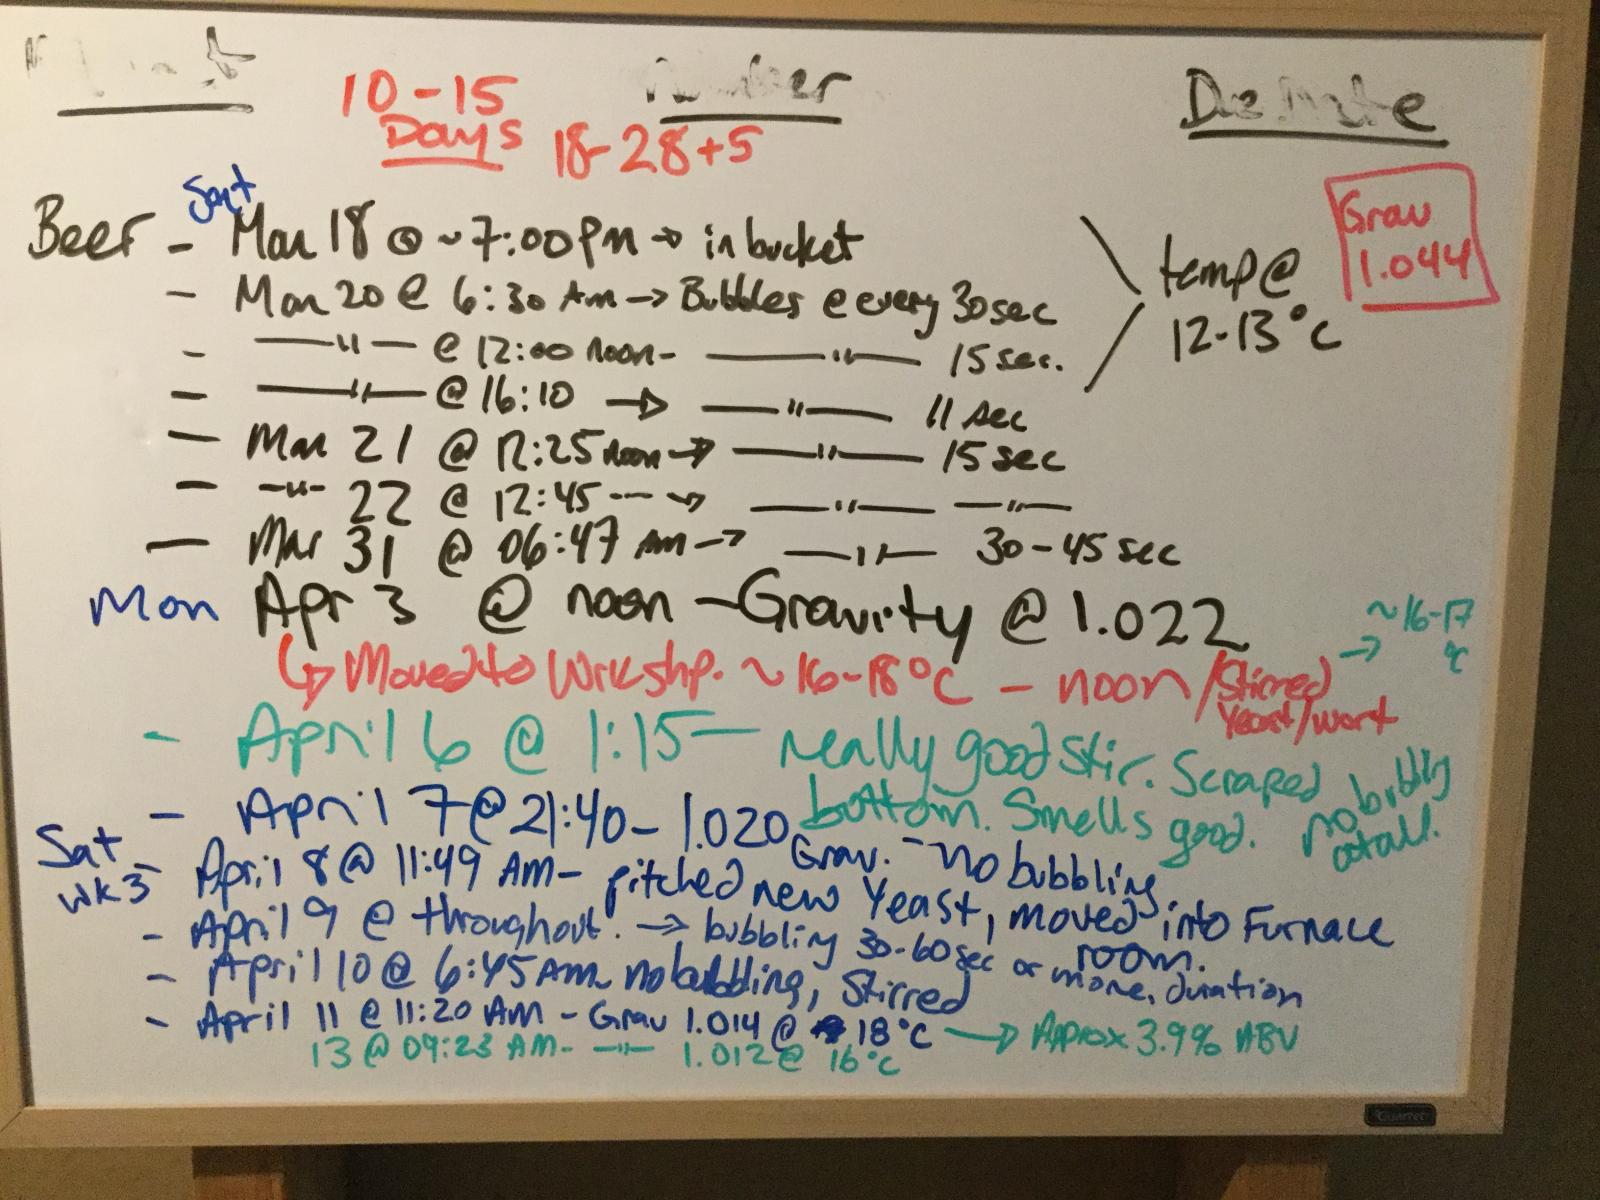 10-15
Days 18-28+5
Grav
1.044
Sat
Beer - Mar 18 @ ~7:00pm → in bucket
- Mar 20 @ 6:30 Am → Bubbles @ every 30sec
temp @
12-13°C
- —"— @ 12:00 noon- —"— 15 sec.
- —"— @ 16:10 → —"— 11 sec
- Mar 21 @ 12:25 noon → —"— 15 sec
- -"- 22 @ 12:45 --- → —"— —"—
- Mar 31 @ 06:47 Am → —"— 30-45 sec
Mon Apr 3 @ noon - Gravity @ 1.022
↳ Moved to Wrkshp. ~16-18°C - noon / Stirred Yeast/wort → ~16-17 °C
- April 6 @ 1:15 — really good stir. Scraped
bottom. Smells good. no bubbly at all.
- April 7 @ 21:40 - 1.020 Grav. - no bubbling
Sat wk3 - April 8 @ 11:49 AM - pitched new Yeast, moved into Furnace room.
- April 9 @ throughout. → bubbling 30-60sec or more, duration
- April 10 @ 6:45 AM - no bubbling, stirred
- April 11 @ 11:20 AM - Grav 1.014 @ 18°C → Approx 3.9% ABV
13 @ 09:23 AM - —"— 1.012 @ 16°C
Quartet